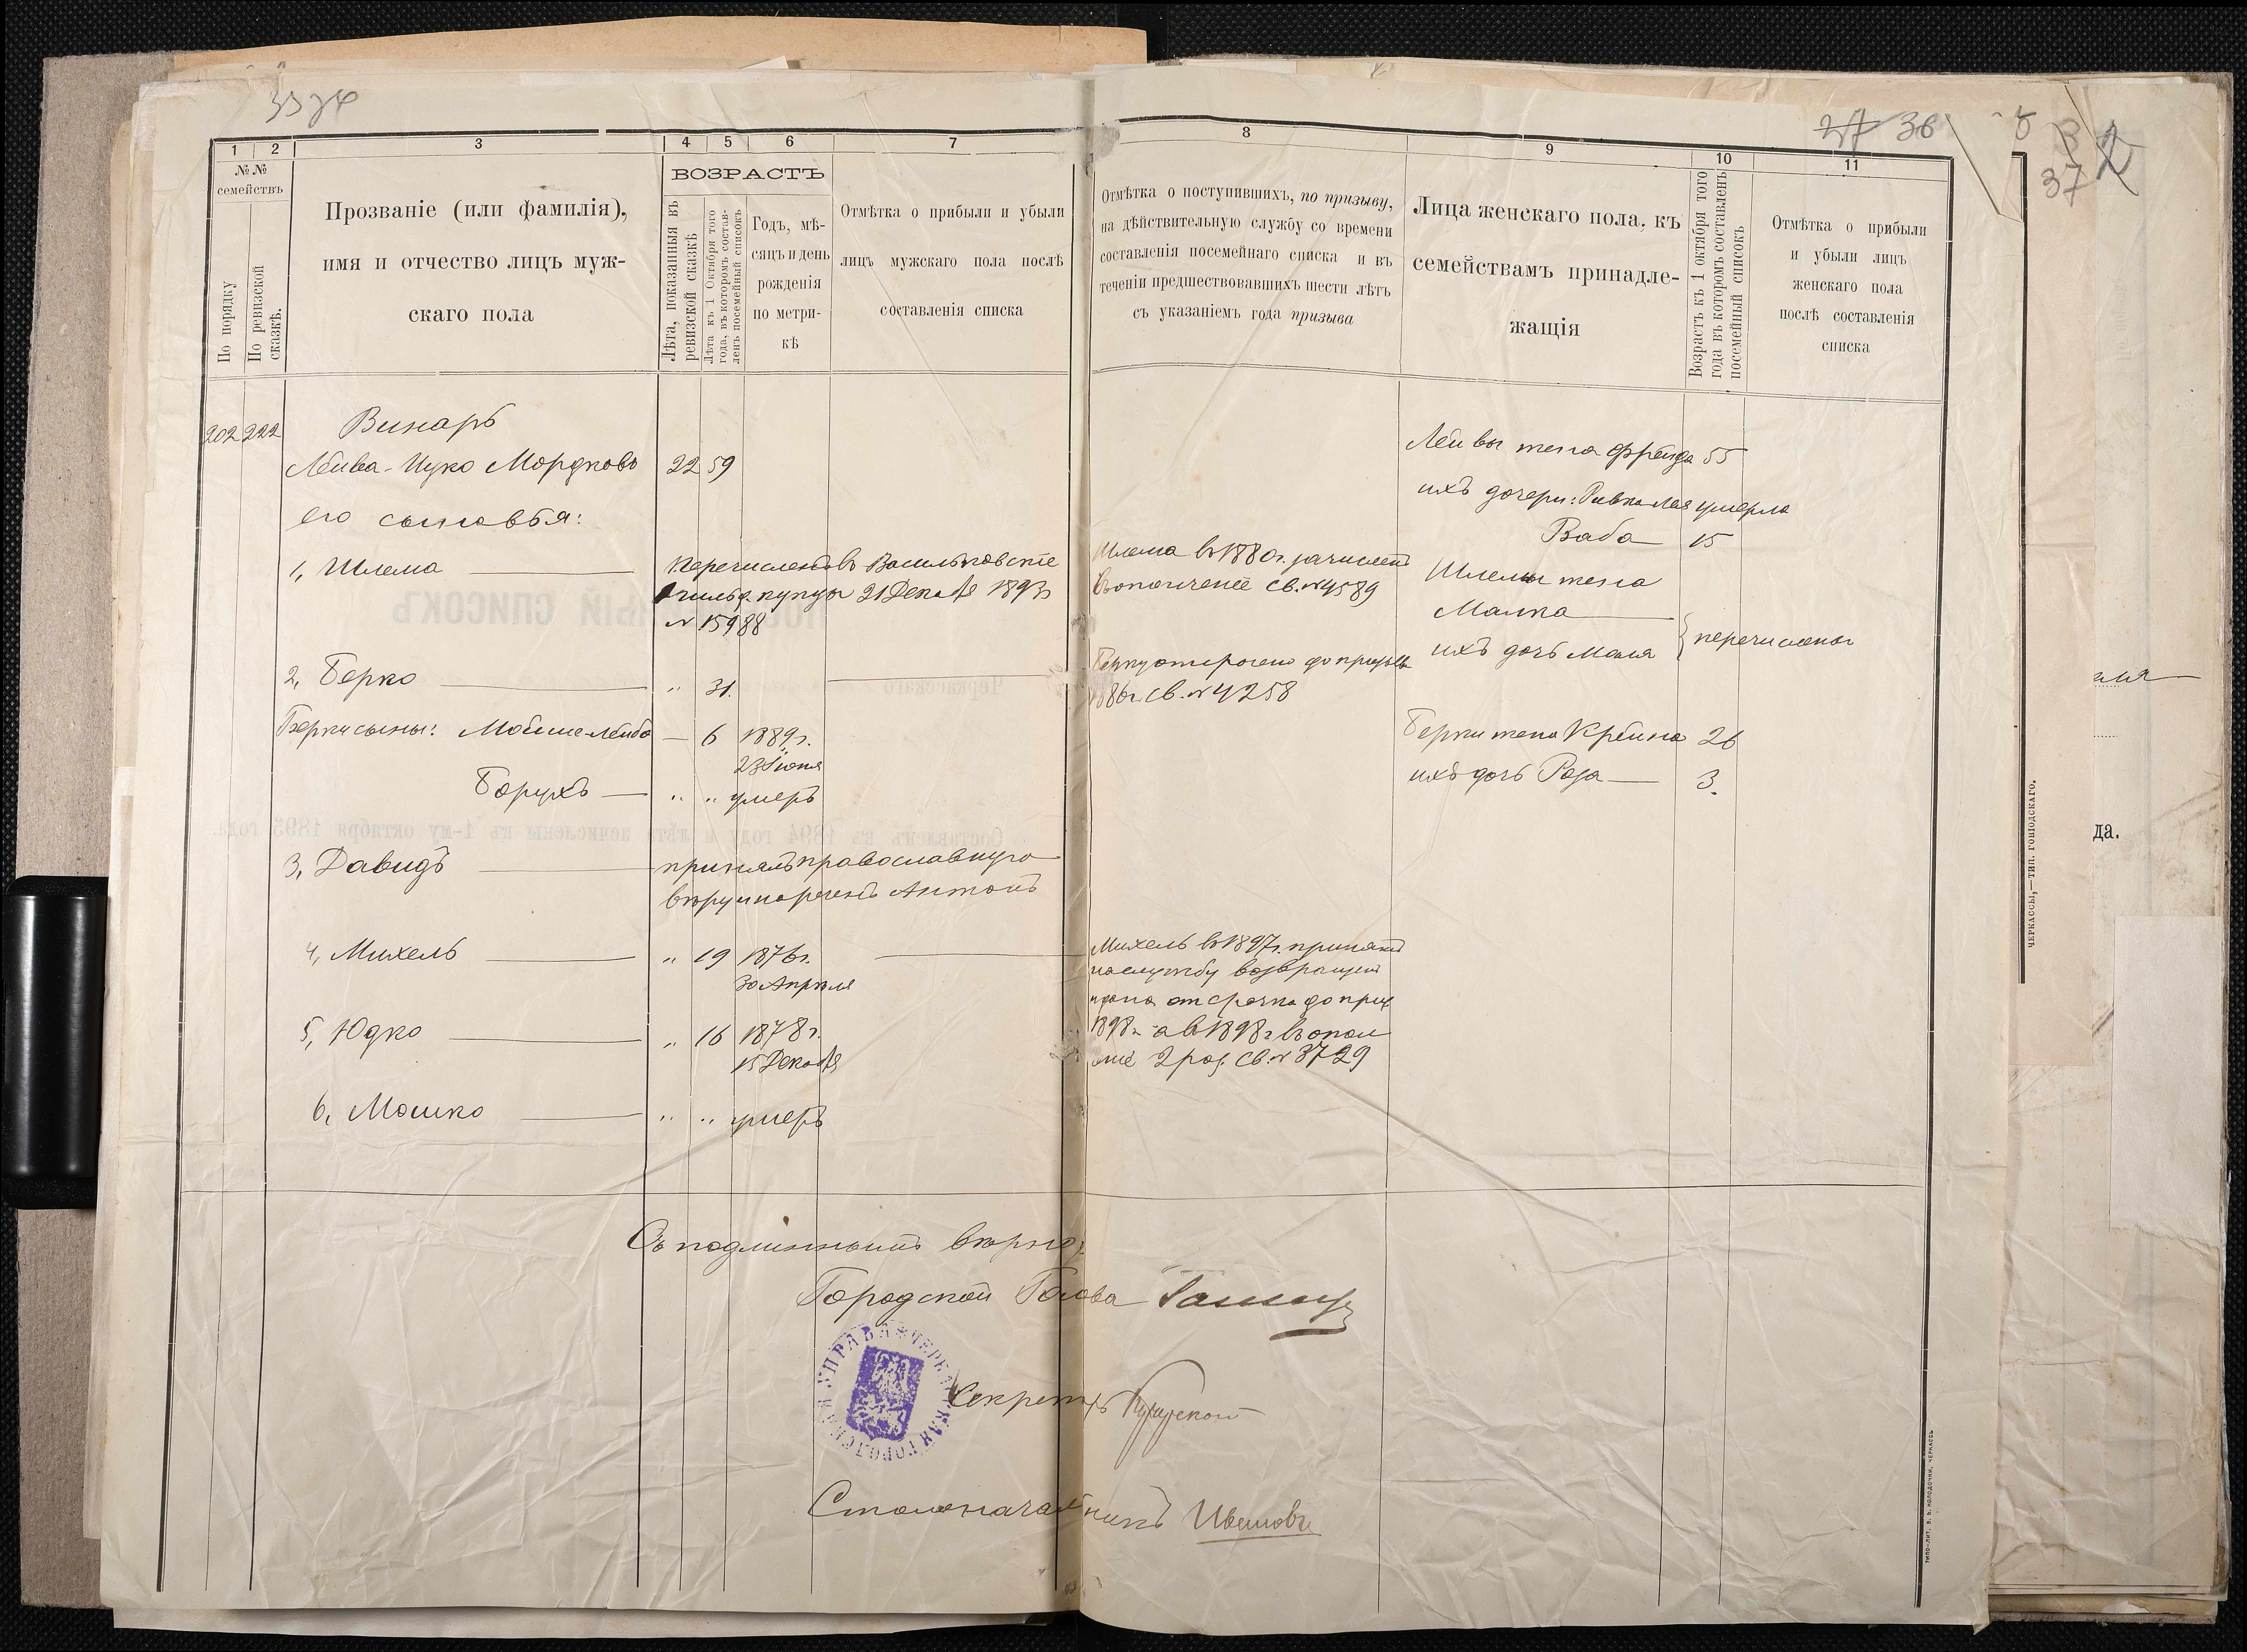 27 36
37
1 2 3 4 5 6 7
№ №
семействъ
По порядку
По ревизской
сказкѣ.
Прозваніе (или фамилія),
имя и отчество лицъ муж-
скаго пола
ВОЗРАСТЪ
Лѣта, показанныя въ
ревизской сказкѣ
Лѣта къ 1 Октября того
года, въ которомъ состав-
ленъ посемейный списокъ
Годъ, мѣ-
сяцъ и день
рожденія
по метри-
кѣ
Отмѣтка о прибыли и убыли
лицъ мужскаго пола послѣ
составленія списка
8 9 10 11
Отмѣтка о поступившихъ, по призыву,
на дѣйствительную службу со времени
составленія посемейнаго списка и въ
теченіи предшествовавшихъ шести лѣтъ
съ указаніемъ года призыва
Лица женскаго пола, къ
семействамъ принадле-
жащія
Возрастъ къ 1 октября того
года въ которомъ составленъ
посемейный списокъ
Отмѣтка о прибыли
и убыли лицъ
женскаго пола
послѣ составленія
списка
202 222 Винаръ
Лейва-Ицко Мордковъ 22 59
его сыновья:
1, Шлема
Перечисленъ въ Васильковскіе
купцы 21 Декабя 1893
№ 15988
2, Берко " 31.
Берки сыны: Мойше-Лейба — 6 1889 г.
23 Іюня
Борухъ — " " умеръ
3, Давидъ принялъ православную
вѣру и нареченъ Антонъ
4, Михель " 19 1876 г.
30 Апрѣля
5, Юдко " 16 1878 г.
15 Декабя
6, Мошко " " умеръ
Шлема въ 1880 г. зачисленъ
въ ополченіе св. № 4589
Берку отсрочено до призыва
1886 г. св. № 4258
Михель въ 1897 г. принятъ
на службу возвращенъ
отсрочка до приз.
1898 г. а въ 1898 г. въ опол
2 раз. св. № 3729
Лейвы жена Фрейда 55
ихъ дочери: Ривка Лея умерла
Баба 15
Шлемы жена
Малка
ихъ дочь Маля перечислены
Берки жена Крейна 26
ихъ дочь Роза — 3.
Съ подлиннымъ вѣрно:
Городской Голова
ЧЕРКАССКАЯ ГОРОДСКАЯ УПРАВА
Секретарь
Столоначальникъ
ТИПО-ЛИТ. В. В. КОЛОДОЧКИ, ЧЕРКАССЪ
ЧЕРКАССЫ,—ТИП. ГОРОДСКАГО.
да.